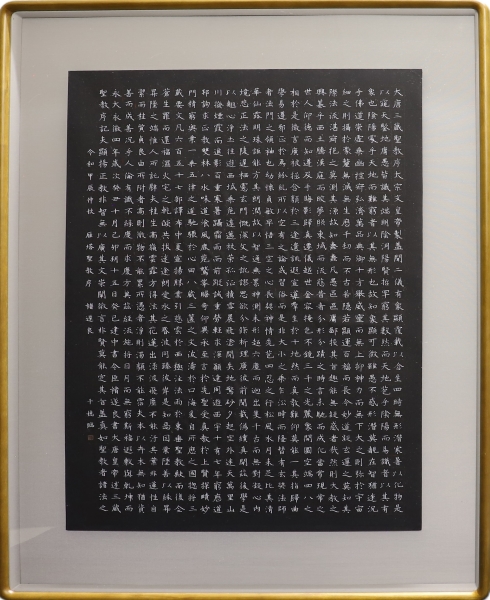 大唐三藏聖教序太宗文皇帝製蓋聞二儀有象顯覆載以含生四時無形潛寒暑以化物是
以窺天鑒地庸愚皆識其端明陰洞陽賢哲罕窮其數然而天地苞乎陰陽而易識者以其有
象也陰陽處乎天地而難窮者以其無形也故知象顯可徵雖愚不惑形潛莫覩在智猶迷況
乎佛道崇虛乘幽控寂弘濟萬品典御十方舉威靈而無上抑神力而無下大之則彌於宇宙
細之則攝於豪釐無滅無生歷千劫而不古若隱若顯運百福而長今妙道凝玄遵之莫知其
際法流湛寂挹之莫測其源故知蠢蠢凡愚區區庸鄙投其旨趣能無疑惑者哉然則大教之
興基乎西土騰漢庭而皎夢照東域而流慈昔者分形分跡之時言未馳而成化當常現常之
世人仰德而知遵及乎晦影歸真遷儀越世金容掩色不鏡三千之光麗象開圖空端四八之
相於是微言廣被拯含類於三途遺訓遐宣導群生於十地然而真教難仰莫能一其指歸曲
學易遵邪正於焉紛糺所以空有之論或習俗而是非大小之乘乍沿時而隆替有玄奘法師
者法門之領袖也幼懷貞敏早悟三空之心長契神情先苞四忍之行松風水月未足比其清
華仙露明珠詎能方其朗潤故以智通無累神測未形超六塵而迥出隻千古而無對凝心內
境悲正法之陵遲栖慮玄門慨深文之訛謬思欲分條析理廣彼前聞截偽續真開茲後學是
以翹心淨土往遊西域乘危遠邁杖策孤征積雪晨飛塗間失地驚砂夕起空外迷天萬里山
川撥煙霞而進影百重寒暑躡霜雨而前蹤誠重勞輕求深願達周遊西宇十有七年窮歷道
邦詢求正教雙林八水味道餐風鹿苑鷲峯瞻奇仰異承至言於先聖受真教於上賢探賾妙
門精窮奧業一乘五律之道馳驟於心田八藏三篋之文波濤於口海爰自所歷之國總將三
藏要文凡六百五十七部譯布中夏宣揚勝業引慈雲於西極注法雨於東垂聖教缺而復全
蒼生罪而還福濕火宅之乾焰共拔迷途朗愛水之昏波同臻彼岸是知惡因業墜善以緣昇
昇墜之端惟人所託譬夫桂生高嶺雲露方得泫其花蓮出淥波飛塵不能汙其葉非蓮性自
潔而桂質本貞良由所附者高則微物不能累所憑者淨則濁類不能沾夫以卉木無知猶資
善而成善況乎人倫有識不緣慶而求慶方冀茲經流施將日月而無窮斯福遐敷與乾坤而
永大永徽四年歲次癸丑十月己卯朔十五日癸巳建中書令臣褚遂良書大唐皇帝述三藏
聖教序記夫顯揚正教非智無以廣其文崇闡微言非賢莫能定其旨蓋真如聖教者諸法之
令和甲辰神秋 雁塔聖教序 褚遂良 臨